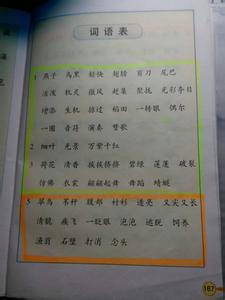 词语表
1 燕子 乌黑 轻快 翅膀 剪刀 尾巴
活泼 机灵 微风 赶集 聚拢 光彩夺目
增添 生机 掠过 稻田 一转眼 偶尔
一圈 音符 演奏 赞歌
2 细叶 光景 万紫千红
3 荷花 清香 挨挨挤挤 碧绿 莲蓬 破裂
仿佛 衣裳 翩翩起舞 舞蹈 蜻蜓
5 翠鸟 苇秆 腹部 衬衫 透亮 又尖又长
清脆 疾飞 一眨眼 泡泡 逃脱 饲养
渔翁 石壁 打消 念头
167